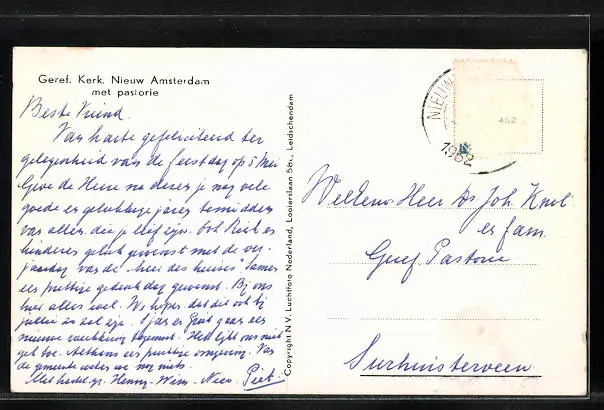 Geref. Kerk, Nieuw Amsterdam
met pastorie
Beste Vriend.
Van harte gefeliciteerd ter
gelegenheid van de feestdag op 5 Mei
Geve de Here na dezen je nog vele
goede en gelukkige jaren temidden
van allen die je lief zijn. Ook
kinderen geluk gewenst met de ver-
jaardag van de "heer des huizes" Samen
een prettige gedenkdag gewenst. Bij ons
hier alles wel. We hopen dat dit ook bij
jullie zo zal zijn.
nieuwe
toe.
de gemeente weten we nog niets.
Met hartel. gr. Henny - Wim - Nico - Piet
Copyright N.V. Luchtfoto Nederland, Looierslaan 56r., Leidschendam
NIEUW
1962
452
Weleerw. Heer Ds Joh. Knol
en fam
Geref. Pastorie
Surhuisterveen